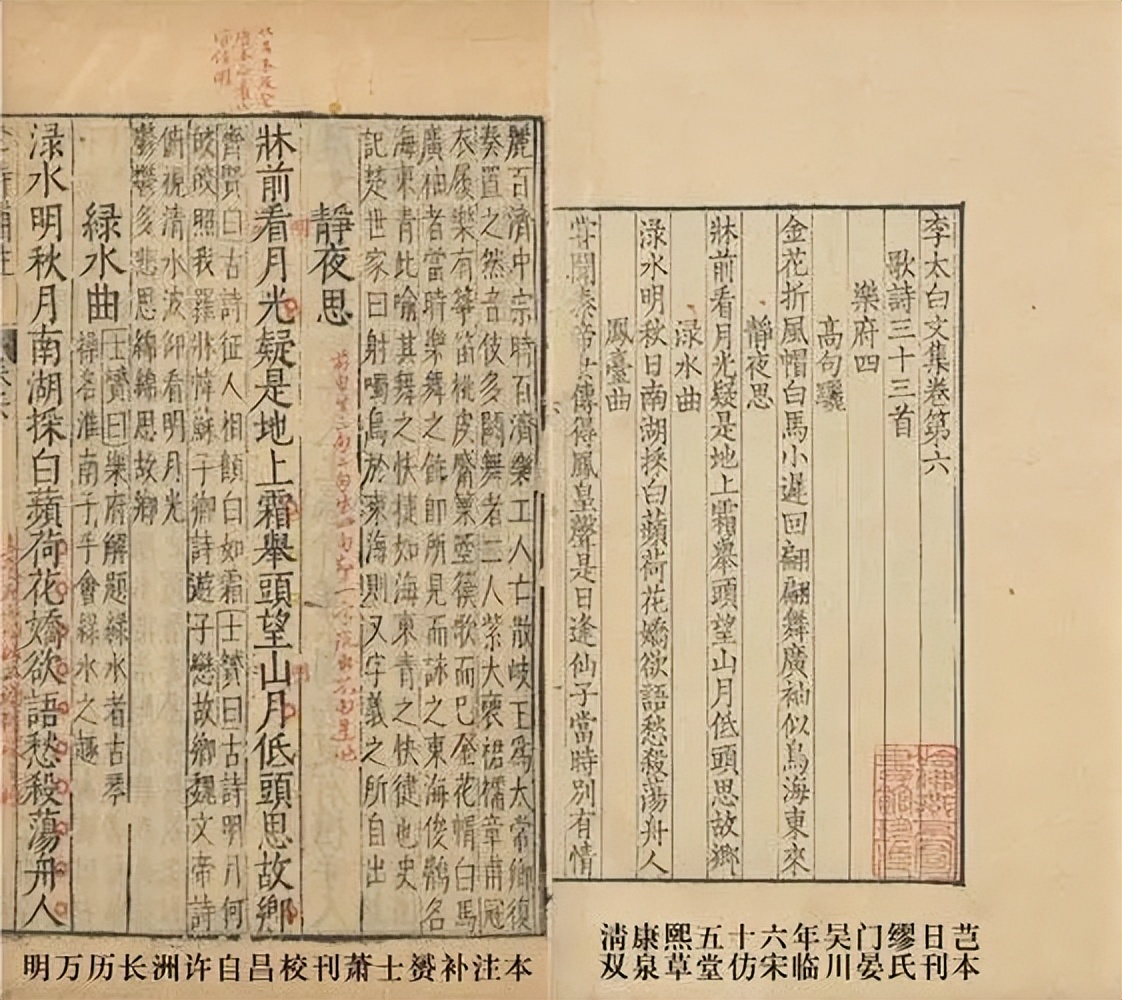 李太白文集卷第六
歌詩三十三首
樂府四
高句驪
金花折風帽白馬小遲回翩翩舞廣袖似鳥海東來
靜夜思
牀前看月光疑是地上霜舉頭望山月低頭思故鄉
渌水曲
渌水明秋日南湖採白蘋荷花嬌欲語愁殺蕩舟人
鳳臺曲
嘗聞秦帝女傳得鳳皇聲是日逢仙子當時別有情
清康熙五十六年吴门缪日芑
双泉草堂仿宋临川晏氏刊本
麗百濟中宗時百濟樂工人亡散岐王爲太常卿復
奏置之然音伎多闕舞者二人紫大褎裙襦章甫冠
衣履樂有箏笛桃皮觱篥箜篌歌而巳金花帽白馬
廣袖者當時樂舞之飾即所見而詠之東海俊鶻名
海東青比喻其舞之快捷如海東青之快健也史
記楚世家曰射噣鳥於東海則又字義之所自出
靜夜思
牀前看月光疑是地上霜舉頭望山月低頭思故鄉
齊賢曰古詩征人相顧白如霜士贇曰古詩明月何
皎皎照我羅牀幃蘇子卿詩遊子戀故鄉魏文帝詩
俯視清水波仰看明月光
鬱鬱多悲思緜緜思故鄉
緑水曲
士贇曰樂府解題緑水者古琴
操名淮南子手會緑水之趣
渌水明秋月南湖採白蘋荷花嬌欲語愁殺蕩舟人
明万历长洲许自昌校刊萧士赟补注本